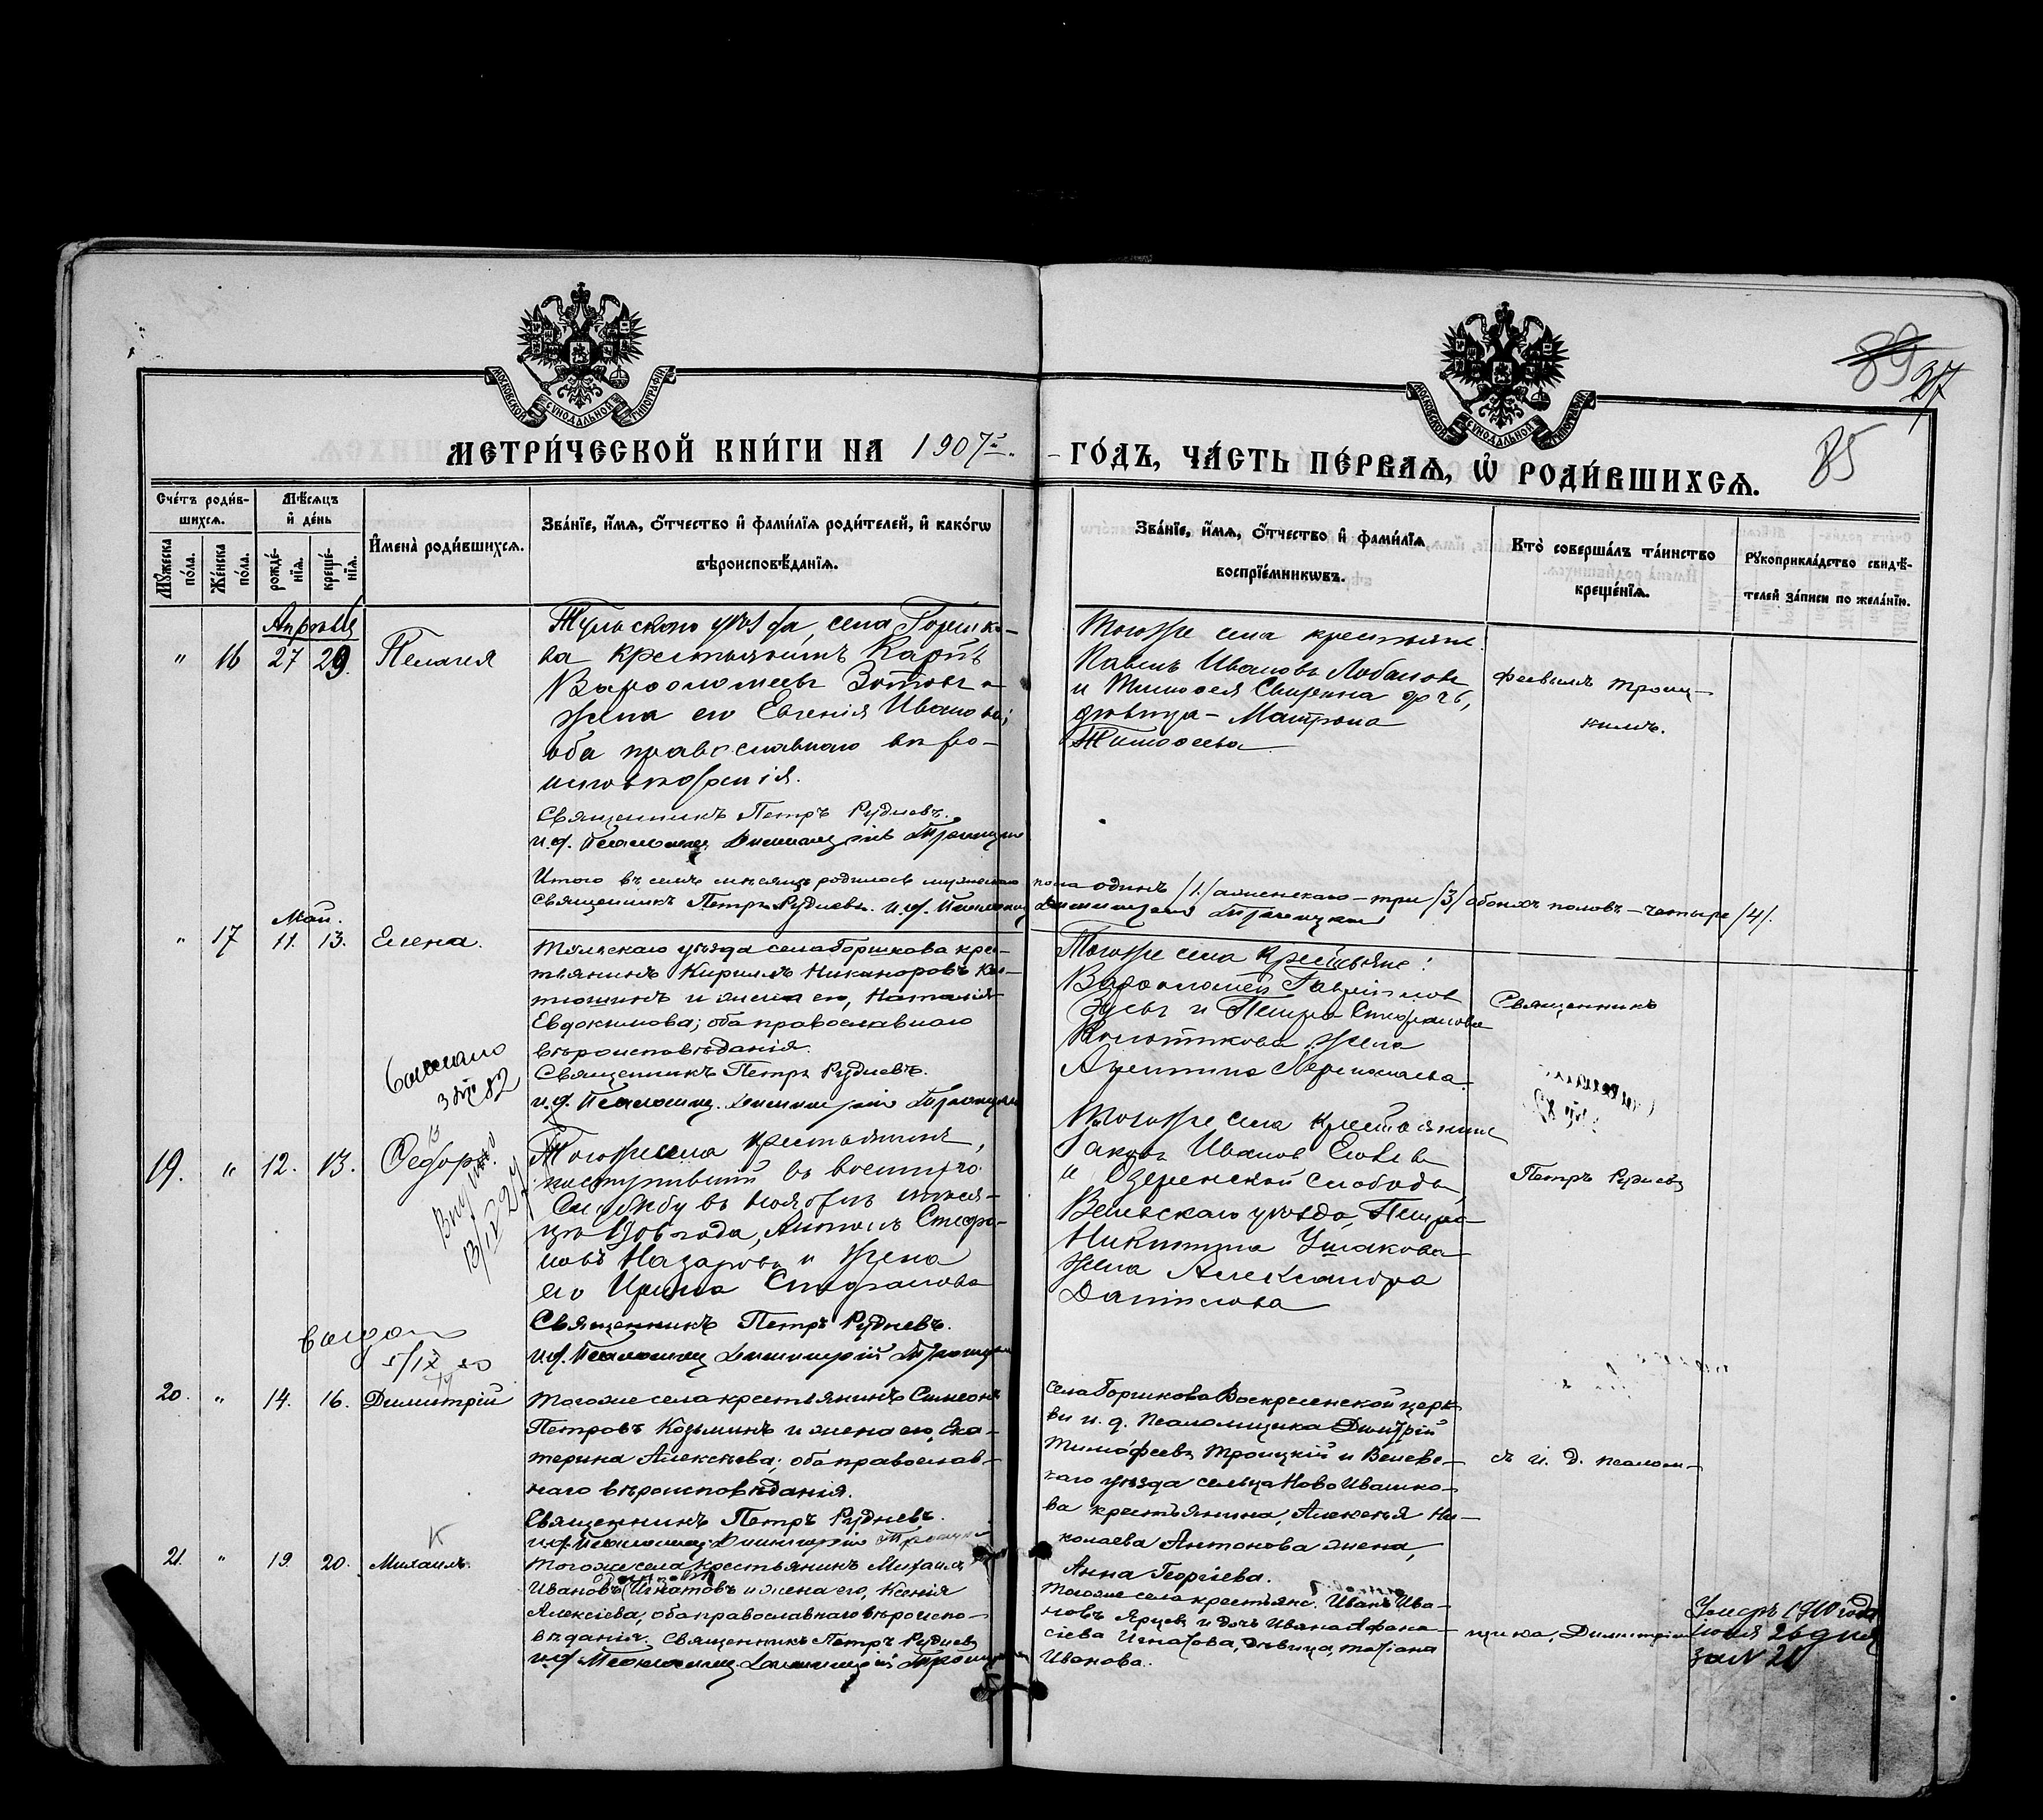 МОСКОВСКОЙ СѴНОДАЛЬНОЙ ТИПОГРАФІИ
МОСКОВСКОЙ СѴНОДАЛЬНОЙ ТИПОГРАФІИ
89 27
85
МЕТРИ́ЧЕСКОЙ КНИ́ГИ НА 1907 г.
ГО́ДЪ, ЧА́СТЬ ПЕ́РВАѦ, Ѡ҆ РОДИ́ВШИХСѦ.
Сче́тъ роди́в-
шихсѧ.
Мꙋ́жеска по́ла.
Же́нска по́ла.
Мѣ́сѧцъ
и҆ де́нь
рожде́-
нїѧ.
креще́-
нїѧ.
И҆мена̀ роди́вшихсѧ.
Зва́нїе, и҆́мѧ, ѻ҆́тчество и҆ фами́лїѧ роди́телей, и҆ како́гѡ
вѣроисповѣ́данїѧ.
Зва́нїе, и҆́мѧ, ѻ҆́тчество и҆ фами́лїѧ
воспрїе́мникѡвъ.
Кто̀ соверша́лъ та́инство
креще́нїѧ.
Рꙋкоприкла́дство свидѣ́-
телей за́писи по жела́нїю.
Апрѣль
" 16 27 29 Пелагея
Тульскаго уѣзда, села Горшко-
ва крестьянинъ Карпъ
Варѳоломеевъ Зотовъ и
жена его Евгенія Иванова;
оба православнаго вѣро-
исповѣданія.
Священникъ Петръ Рудневъ.
и.д. Псаломщ. Димитрій Троицкій
Тогоже села крестьяне
Павелъ Ивановъ Лобановъ
и Тимоѳея дочь,
дѣвица - Матрона
Тимоѳеева
Троиц-
кимъ.
Итого въ семъ мѣсяцѣ родилось мужескаго пола одинъ /1/ а женскаго - три /3/ обоихъ половъ - четыре /4/.
Священникъ Петръ Рудневъ. и.д. Псаломщ. Димитрій Троицкій
Май.
" 17 11. 13. Елена.
Тульскаго уѣзда села Горшкова кре-
стьянинъ Кириллъ Никаноровъ
и жена его, Наталія
Евдокимова; оба православнаго
вѣроисповѣданія.
Священникъ Петръ Рудневъ.
и.д. Псаломщ. Димитрій Троицкій
Тогоже села крестьяне:
Варѳоломей Гавріиловъ
и Петра Стефанова
жена
Священникъ
82
19. " 12. 13. Ѳедоръ.
27
Тогоже села крестьянинъ,
поступившій въ военную
службу въ ноябрѣ мѣся-
цѣ 1906 года, Антонъ Стефа-
новъ Назаровъ и жена
его Ирина Стефанова
Священникъ Петръ Рудневъ.
и.д. Псаломщ. Димитрій Троицкій
Тогоже села крестьянинъ
Іаковъ Ивановъ
и Озеренской слободы,
Веневскаго уѣзда, Петра
Никитина Ушакова
жена Александра
Даніилова
Петръ Рудневъ
20. " 14. 16. Димитрій
Тогоже села крестьянинъ Симеонъ
Петровъ Козьминъ и жена его, Ека-
терина Алексѣева; оба православ-
наго вѣроисповѣданія.
Священникъ Петръ Рудневъ.
и.д. Псаломщ. Димитрій Троицкій
Села Горшкова Воскресенской церк-
ви и. д. псаломщика Димитрій
Тимоѳеевъ Троицкій и Веневс-
каго уѣзда сельца Ново Ивашко-
ва крестьянина, Алексѣя Ни-
колаева Антонова жена,
Анна Георгіева.
съ и. д. псалом-
К
21. " 19. 20. Михаилъ.
Тогоже села крестьянинъ Михаилъ
Ивановъ Игнатовъ и жена его, Ксенія
Алексіева, оба православнаго вѣроиспо-
вѣданія. Священникъ Петръ Рудневъ
и.д. Псаломщ. Димитрій Троицкій
Тогоже села крестьяне. Иванъ Ива-
новъ Ярцев и дочь Ивана Аѳана-
сіева Игнатова, дѣвица, Татіана
Иванова.
щика, Димитріемъ
Умеръ 1910 года
іюля 26 дня
за № 21